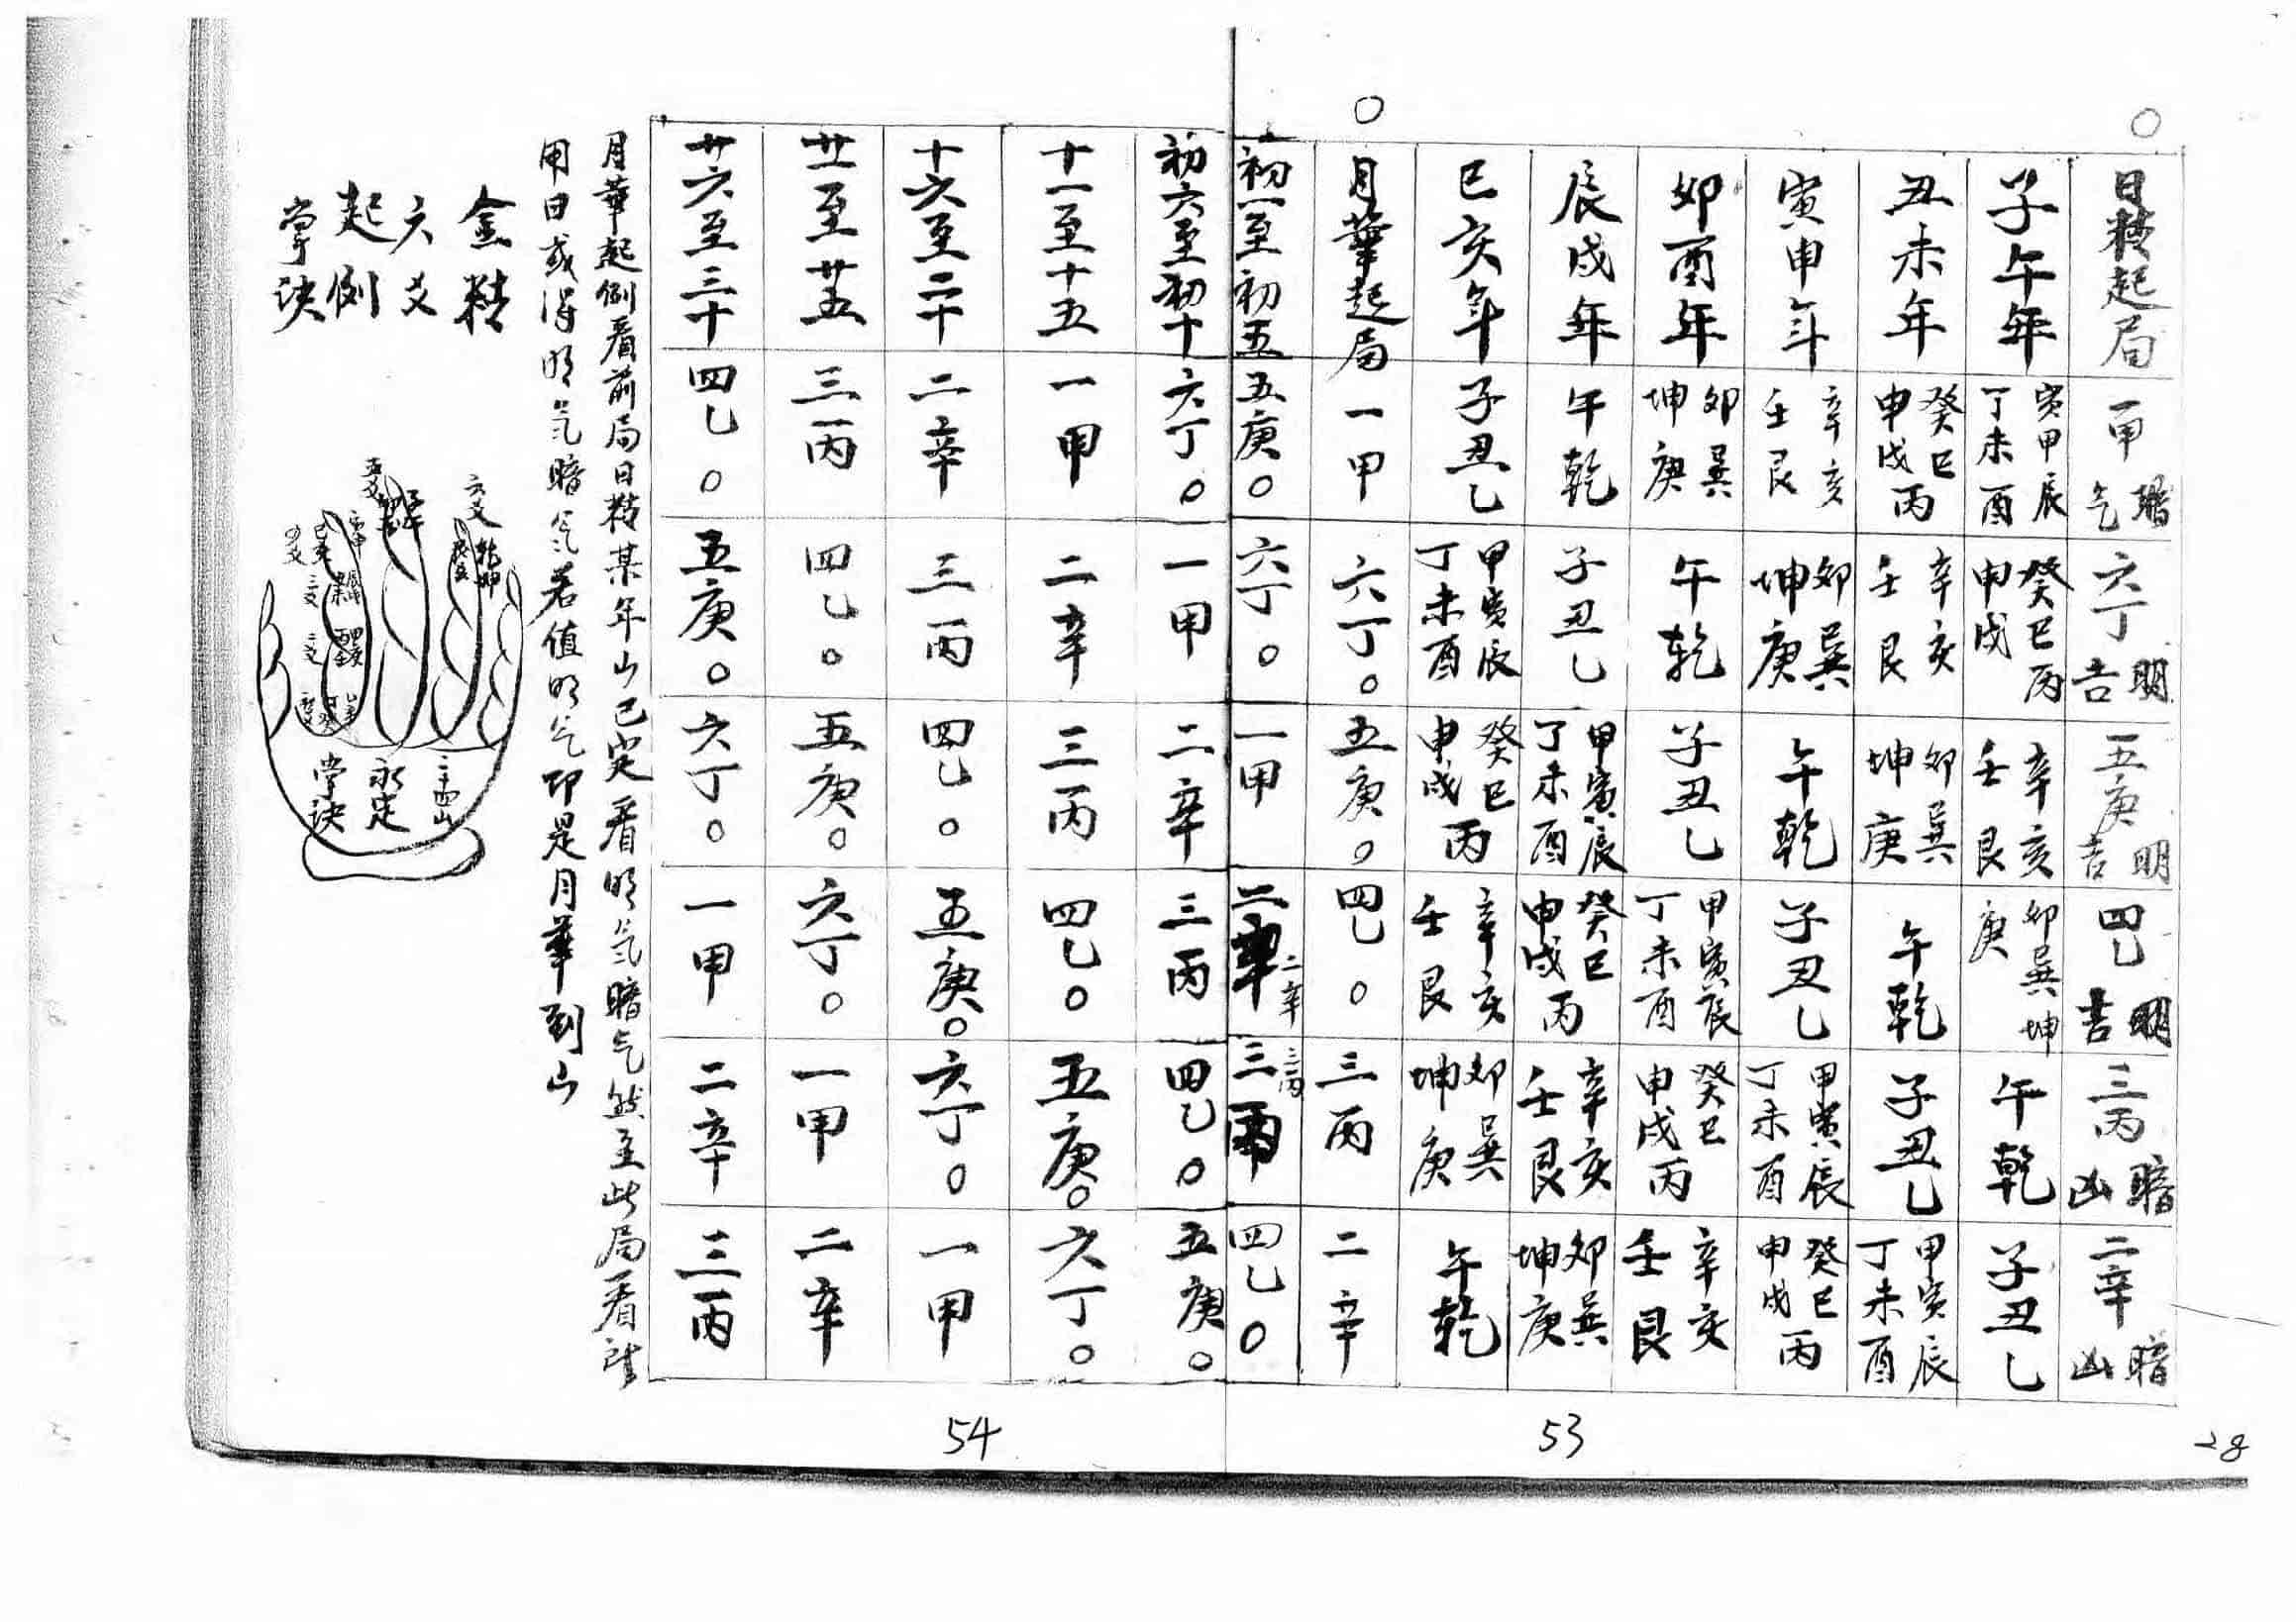 日精起局 一甲 暗气 六丁 明吉 五庚 明吉 四乙 明吉 三丙 暗凶 二辛 暗凶
子午年 寅甲辰丁未酉 癸巳丙申戌 辛亥壬艮 卯巽坤庚 午乾 子丑乙
丑未年 癸巳申戌丙 辛亥壬艮 卯巽坤庚 午乾 子丑乙 甲寅辰丁未酉
寅申年 辛亥壬艮 卯巽坤庚 午乾 子丑乙 甲寅辰丁未酉 癸巳申戌丙
卯酉年 卯巽坤庚 午乾 子丑乙 甲寅辰丁未酉 癸巳申戌丙 辛亥壬艮
辰戌年 午乾 子丑乙 甲寅辰丁未酉 癸巳申戌丙 辛亥壬艮 卯巽坤庚
巳亥年 子丑乙 甲寅辰丁未酉 癸巳申戌丙 辛亥壬艮 卯巽坤庚 午乾
月華起局 一甲 六丁○ 五庚○ 四乙○ 三丙 二辛
初一至初五 五庚○ 六丁○ 一甲 二辛 二辛 三丙 三丙 四乙○
53
初六至初十 六丁○ 一甲 二辛 三丙 四乙○ 五庚○
十一至十五 一甲 二辛 三丙 四乙○ 五庚○ 六丁○
十六至二十 二辛 三丙 四乙○ 五庚○ 六丁○ 一甲
廿一至廿五 三丙 四乙○ 五庚○ 六丁○ 一甲 二辛
廿六至三十 四乙○ 五庚○ 六丁○ 一甲 二辛 三丙
月華起例看前局日精某年山已定看明气暗气然主此局看所
用日或得明气暗气若值明气即是月華到山
金精
六爻
起例
掌诀
六爻
乾坤
二十四山
永定
掌诀
54
28